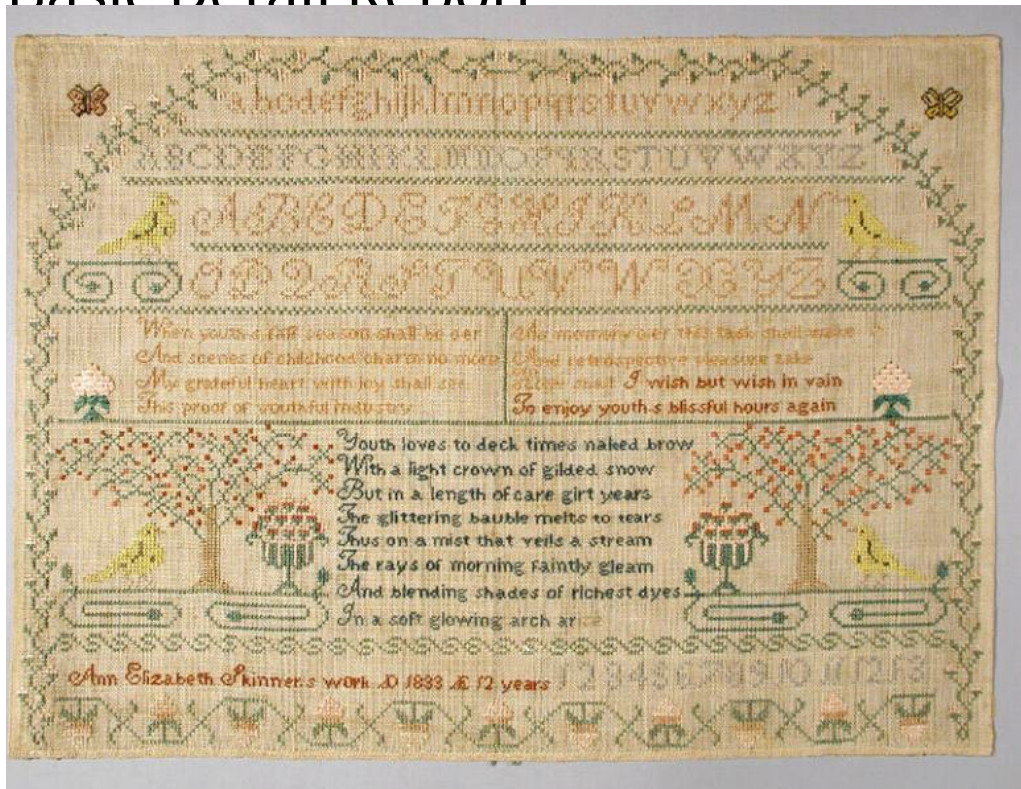 Basic Detail Report
a b c d e f g h i j k l m n o p q r s t u v w x y z
A B C D E F G H I K L M N O P Q R S T U V W X Y Z
A B C D E F G H I K L M N
O P Q R S T U V W X Y Z
When youth-s fair season shall be oer
And scenes of childhood charm no more
My grateful heart with joy shall see
This proof of youthful industry
As memory oer this task shall wake
And retrospective pleasure take
How shall I wish but wish in vain
To enjoy youth-s blissful hours again
Youth loves to deck times naked brow
With a light crown of gilded snow
But in a length of care girt years
The glittering bauble melts to tears
Thus on a mist that veils a stream
The rays of morning faintly gleam
And blending shades of richest dyes
In a soft glowing arch arise
Ann Elizabeth Skinner.s work AD 1833 Æ 12 years 1 2 3 4 5 6 7 8 9 10 11 12 13